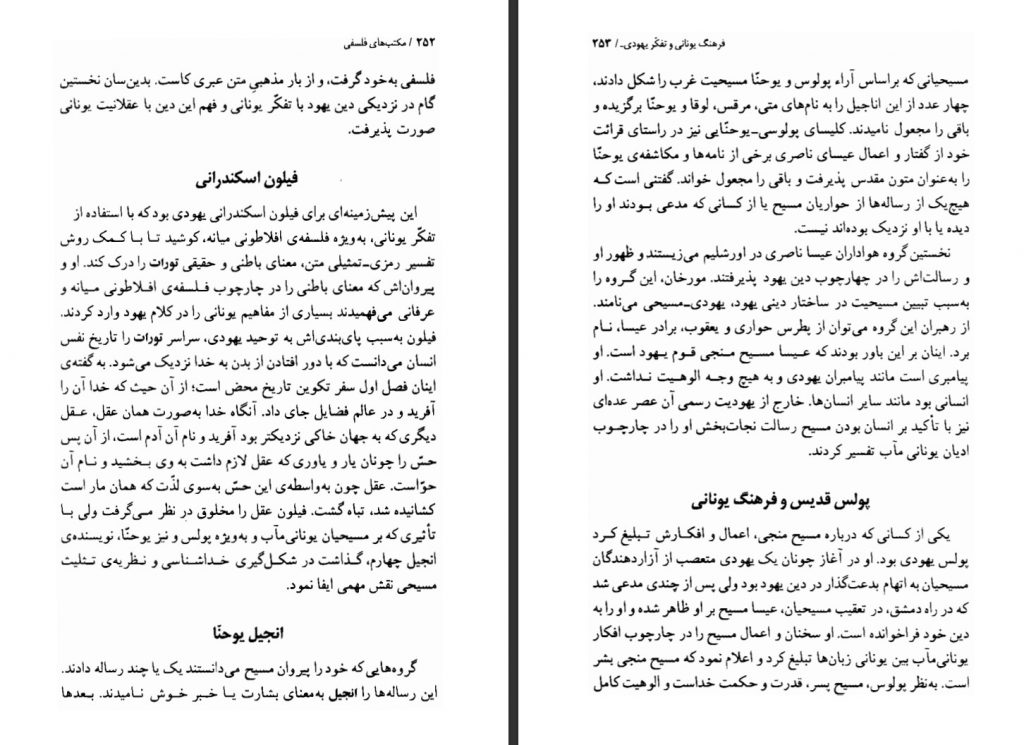 ۲۵۲ / مکتب‌های فلسفی
فلسفی به‌خود گرفت، و از بار مذهبیِ متن عبری کاست. بدین‌سان نخستین
گام در نزدیکی دین یهود با تفکّر یونانی و فهم این دین با عقلانیت یونانی
صورت پذیرفت.
فیلون اسکندرانی
این پیش‌زمینه‌ای برای فیلون اسکندرانی یهودی بود که با استفاده از
تفکّر یونانی، به‌ویژه فلسفه‌ی افلاطونی میانه، کوشید تا با کمک روش
تفسیر رمزی‌ـ‌تمثیلی متن، معنای باطنی و حقیقی تورات را درک کند. او و
پیروان‌اش که معنای باطنی را در چارچوب فلسفه‌ی افلاطونی میانه و
عرفانی می‌فهمیدند بسیاری از مفاهیم یونانی را در کلام یهود وارد کردند.
فیلون به‌سبب پای‌بندی‌اش به توحید یهودی، سراسر تورات را تاریخ نفس
انسان می‌دانست که با دور افتادن از بدن به خدا نزدیک می‌شود. به گفته‌ی
اینان فصل اول سفر تکوین تاریخ محض است؛ از آن حیث که خدا آن را
آفرید و در عالم فضایل جای داد. آنگاه خدا به‌صورت همان عقل، عقل
دیگری که به جهان خاکی نزدیکتر بود آفرید و نام آن آدم است، از آن پس
حسّ را چونان یار و یاوری که عقل لازم داشت به وی بخشید و نام آن
حوّاست. عقل چون به‌واسطه‌ی این حسّ به‌سوی لذّت که همان مار است
کشانیده شد، تباه گشت. فیلون عقل را مخلوق در نظر می‌گرفت ولی با
تأثیری که بر مسیحیان یونانی‌مآب و به‌ویژه پولس و نیز یوحنّا، نویسنده‌ی
انجیل چهارم، گذاشت در شکل‌گیری خداشناسی و نظریه‌ی تثلیث
مسیحی نقش مهمی ایفا نمود.
انجیل یوحنّا
گروه‌هایی که خود را پیروان مسیح می‌دانستند یک یا چند رساله دادند.
این رساله‌ها را انجیل به‌معنای بشارت یا خبر خوش نامیدند. بعدها
فرهنگ یونانی و تفکّر یهودی‌ـ / ۲۵۳
مسیحیانی که براساس آراء پولوس و یوحنّا مسیحیت غرب را شکل دادند،
چهار عدد از این اناجیل را به نام‌های متی، مرقس، لوقا و یوحنّا برگزیده و
باقی را مجعول نامیدند. کلیسای پولوسی‌ـ‌یوحنّایی نیز در راستای قرائت
خود از گفتار و اعمال عیسای ناصری برخی از نامه‌ها و مکاشفه‌ی یوحنّا
را به‌عنوان متون مقدس پذیرفت و باقی را مجعول خواند. گفتنی است که
هیچ‌یک از رساله‌ها از حواریان مسیح یا از کسانی که مدعی بودند او را
دیده یا با او نزدیک بوده‌اند نیست.
نخستین گروه هواداران عیسا ناصری در اورشلیم می‌زیستند و ظهور او
و رسالت‌اش را در چهارچوب دین یهود پذیرفتند. مورخان، این گروه را
به‌سبب تبیین مسیحیت در ساختار دینی یهود، یهودی‌ـ‌مسیحی می‌نامند.
از رهبران این گروه می‌توان از پطرس حواری و یعقوب، برادر عیسا، نام
برد. اینان بر این باور بودند که عیسا مسیح منجی قوم یهود است. او
پیامبری است مانند پیامبران یهودی و به هیچ وجه الوهیت نداشت. او
انسانی بود مانند سایر انسان‌ها. خارج از یهودیت رسمی آن عصر عده‌ای
نیز با تأکید بر انسان بودن مسیح رسالت نجات‌بخش او را در چارچوب
ادیان یونانی مآب تفسیر کردند.
پولس قدیس و فرهنگ یونانی
یکی از کسانی که درباره مسیح منجی، اعمال و افکارش تبلیغ کرد
پولس یهودی بود. او در آغاز چونان یک یهودی متعصب از آزاردهندگان
مسیحیان به اتهام بدعت‌گذار در دین یهود بود ولی پس از چندی مدعی شد
که در راه دمشق، در تعقیب مسیحیان، عیسا مسیح بر او ظاهر شده و او را به
دین خود فراخوانده است. او سخنان و اعمال مسیح را در چارچوب افکار
یونانی‌مآب بین یونانی زبان‌ها تبلیغ کرد و اعلام نمود که مسیح منجی بشر
است. به‌نظر پولوس، مسیح پسر، قدرت و حکمت خداست و الوهیت کامل